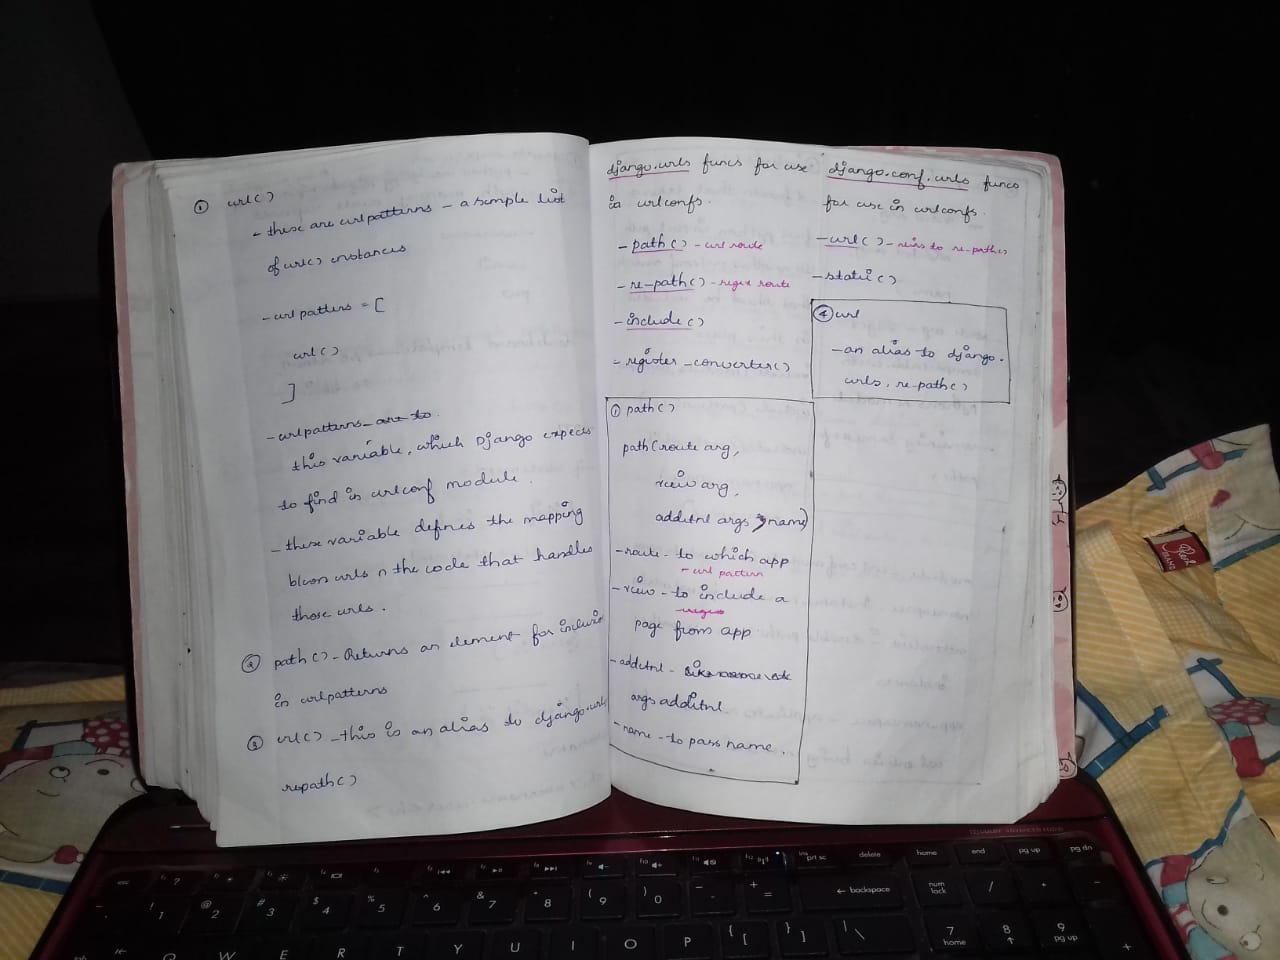 ① url()
- these are urlpatterns - a simple list
of url() instances
- urlpatters = [
url()
]
- urlpatterns - are to.
this variable, which Django expects
to find in urlconf module.
- these variable defines the mapping
b/wn urls n the code that handles
those urls.
② path() - Returns an element for inclusio
in urlpatterns
③ url() - this is an alias to django.urls
repath()
django.urls funcs for use
in urlconfs.
- path() - url route
- re-path() - regex route
- include()
- register-converter()
① path()
path(route arg,
view arg,
additnl args, name)
- route - to which app
- url pattern
- view - to include a
page from app
- additnl -
args additnl
- name - to pass name.
django.conf.urls funcs
for use in urlconfs.
- url() - to re-path()
- static()
④ url
- an alias to django.
urls, re-path()
esc
! 1
@ 2
# 3
$ 4
% 5
^ 6
& 7
* 8
( 9
) 0
- -
+ =
← backspace
prt sc
delete
home
end
pg up
pg dn
num lock
/
Q W E R T Y U I O P { [ } ] | \
7 home
8 ↑
9 pg up
+